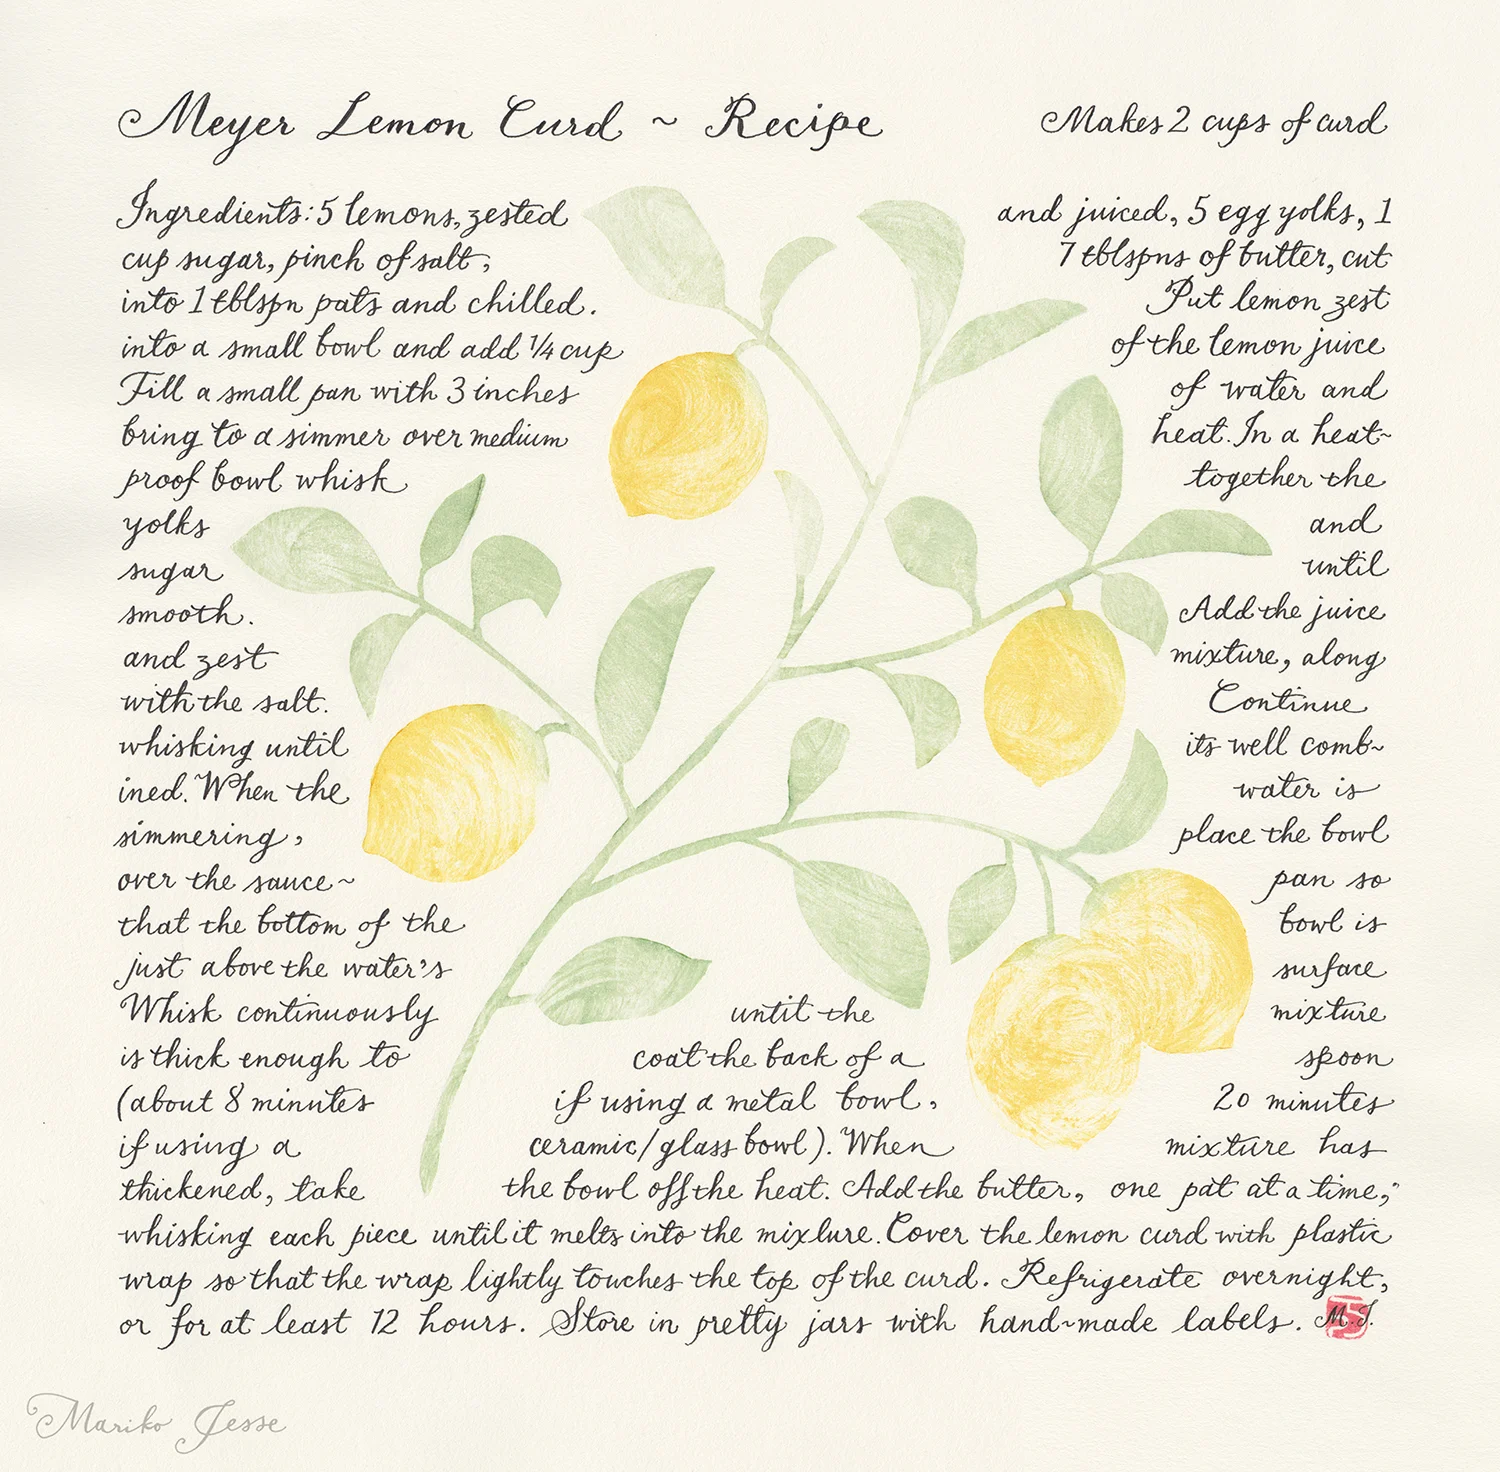 Meyer Lemon Curd ~ Recipe Makes 2 cups of curd
Ingredients: 5 lemons, zested and juiced, 5 egg yolks, 1
cup sugar, pinch of salt, 7 tblspns of butter, cut
into 1 tblspn pats and chilled. Put lemon zest
into a small bowl and add 1/4 cup of the lemon juice
Fill a small pan with 3 inches of water and
bring to a simmer over medium heat. In a heat~
proof bowl whisk together the
yolks and
sugar until
smooth. Add the juice
and zest mixture, along
with the salt. Continue
whisking until its well comb~
ined. When the water is
simmering, place the bowl
over the sauce~ pan so
that the bottom of the bowl is
just above the water's surface
Whisk continuously until the mixture
is thick enough to coat the back of a spoon
(about 8 minutes if using a metal bowl, 20 minutes
if using a ceramic/glass bowl). When mixture has
thickened, take the bowl off the heat. Add the butter, one pat at a time,
whisking each piece until it melts into the mixture. Cover the lemon curd with plastic
wrap so that the wrap lightly touches the top of the curd. Refrigerate overnight,
or for at least 12 hours. Store in pretty jars with hand~made labels. M.J.
Mariko Jesse